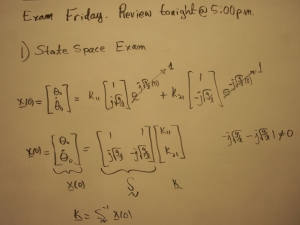 Exam Friday. Review tonight @ 5:00 p.m.
1) State Space Exam
x(0) = [θ₀ θ̇₀] = k₁₁ [1 j√(g/l)] e^{j√(g/l)(0)} → 1 + k₂₁ [1 -j√(g/l)] e^{-j√(g/l)(0)} → 1
x(0) = [θ₀ θ̇₀] = [1 1 j√(g/l) -j√(g/l)] [k₁₁ k₂₁] -j√(g/l) - j√(g/l) ≠ 0
x(0) S k
k = S⁻¹ x(0)